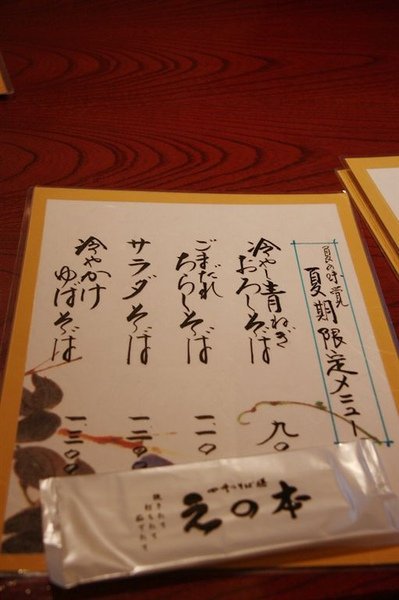 夏の味覚
夏期限定メニュー
冷やし青ねぎ
おろしそば
九〇
ごまだれ
ちらしそば
一一〇
サラダそば
一二〇
冷やかけ
ゆばそば
一三〇
えの本
挽きたて
打ちたて
茹でたて